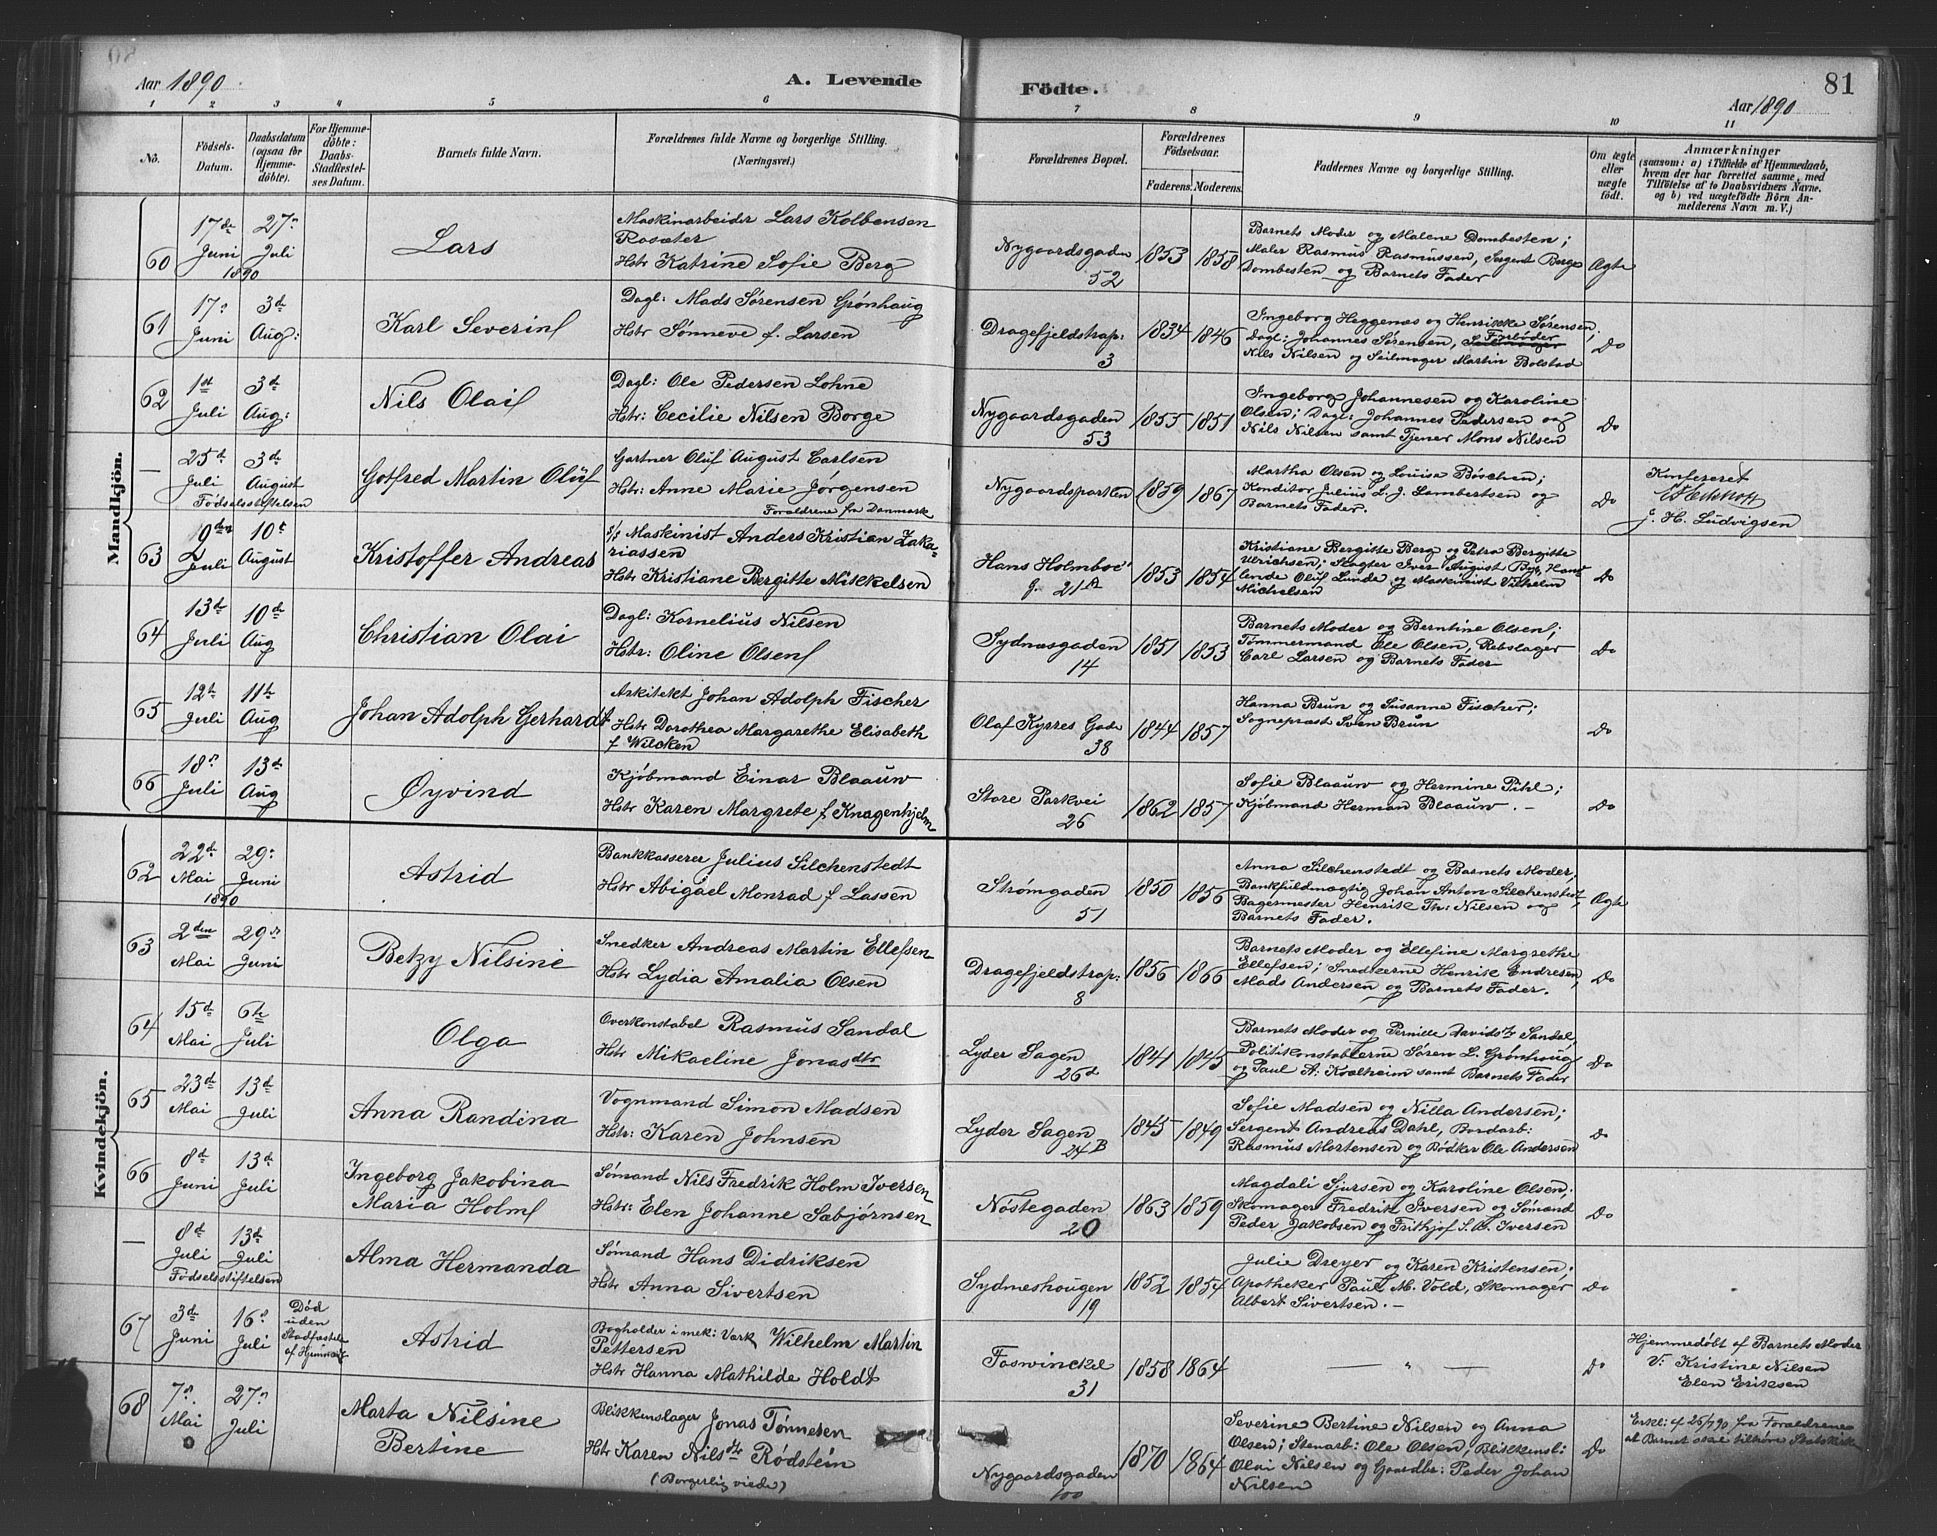 Aar 1890
A. Levende
Födte.
Aar 1890
81
1 2 3 4 5 6 7 8 9 10 11
No.
Födsels-
Datum.
Daabsdatum
(ogsaa for
Hjemme-
döbte).
For Hjemme-
döbte:
Daabs-
Stadfæstel-
ses Datum.
Barnets fulde Navn.
Forældrenes fulde Navne og borgerlige Stilling.
(Næringsvei.)
Forældrenes Bopæl.
Forældrenes
Födselsaar.
Faderens. Moderens.
Faddernes Navne og borgerlige Stilling.
Om ægte
eller
uægte
födt.
Anmærkninger
(saasom: a) i Tilfælde af Hjemmedaab,
hvem der har forrettet samme, med
Tilföielse af to Daabsvidners Navne.
og b) ved uægtefödte Börn An-
melderens Navn m. V.)
Mandkjön.
60
17de
Juni
1890
27
Juli
Lars
Maskinarbeider Lars Kolbensen
Rosæter
Hstr Katrine Sofie Berg
Nygaardsgaden
52
1853 1858
Barnets Moder og Malene Dombesten;
Maler Rasmus Rasmussen, Sergent Berge
Dombesten og Barnets Fader
Ægte
61
17
Juni
3d
Aug:
Karl Severin
Dagl: Mads Sørensen Grønhaug
Hstr Sønneve f. Larsen
Dragefjeldstrap:
3
1834 1846
Ingeborg Heggenæs og Henrikke Sørensen;
Dagl: Johannes Sørensen, Forbøder
Nils Nilsen og Seilmager Martin Bolstad
Do
62
1st
Juli
3d
Aug:
Nils Olai
Dagl: Ole Pedersen Lohne
Hstr: Cecilie Nilsen Borge
Nygaardsgaden
53
1855 1851
Ingeborg Johannesen og Karoline
Olsen; Dagl: Johannes Pedersen og
Nils Nilsen samt Tjener Mons Nilsen
Do
—
25d
Juli
3d
August
Fødselsstiftelsen
Gotfred Martin Oluf
Gartner Oluf August Carlsen
Hstr: Anne Marie Jørgensen
Forældrene fra Danmark
Nygaardsparken
1859 1867
Martha Olsen og Louise Bøschen;
Konditor Julius L. J. Lambertsen og
Barnets Fader.
Do
Konfereret
J. H. Ludvigsen
63
19de
Juli
10
August
Kristoffer Andreas
Maskinist Anders Kristian Zaka-
riassen
Hstr Kristiane Bergitte Mikkelsen
Hans Holmboe
g. 21A
1853 1854
Kristiane Bergitte Berg og Petra Bergitte
Ulrichsen; Slagter Iver August Bye, Hand-
lende Oluf Lunde og Maskinist Vilhelm
Michelsen
Do
64
13d
Juli
10d
Aug
Christian Olai
Dagl: Kornelius Nilsen
Hstr: Oline Olsen
Sydnæsgaden
14
1851 1853
Barnets Moder og Berntine Olsen;
Tømmermand Ole Olsen, Rebslager
Carl Larsen og Barnets Fader
Do
65
12t
Juli
11t
Aug
Johan Adolph Gerhardt
Arkitekt Johan Adolph Fischer
Hstr Dorothea Margarethe Elisabeth
f Wilcken
Olaf Kyrres Gade
38
1844 1857
Hanna Brun og Susanne Fischer;
Sognepræst Sven Brun
Do
66
18
Juli
13d
Aug
Øyvind
Kjøbmand Einar Blaauw
Hstr Karen Margrete f Knagenhjelm
Store Parkvei
26
1862 1857
Sofie Blaauw og Hermine Pihl;
Kjøbmand Herman Blaauw. —
Do
Kvindekjön.
62
22d
Mai
1890
29
Juni
Astrid
Bankkasserer Julius Silchenstedt
Hstr Abigael Monrad f Lassen
Strømgaden
51
1850 1856
Anna Silchenstedt og Barnets Moder,
Bankfuldmægtig Johan Anton Silchenstedt,
Bagermester Henrik Th: Nilsen og
Barnets Fader.
Ægte
63
2den
Mai
29d
Juni
Betzy Nilsine
Snedker Andreas Martin Ellefsen
Hstr Lydia Amalia Olsen
Dragefjeldstrap:
8
1856 1866
Barnets Moder og Ellefine Margrethe
Ellefsen; Snedkerne Henrik Endresen,
Mads Andersen og Barnets Fader.
Do
64
15d
Mai
6te
Juli
Olga
Overkonstabel Rasmus Sandal
Hstr Mikaeline Jonasdtr
Lyder Sagen
26d
1841 1845
Barnets Moder og Pernille Davidsdtr Sandal,
Politikonstablerne Søren L. Grønhoug
og Paul A. Kvalheim samt Barnets Fader
Do
65
23d
Mai
13d
Juli
Anna Randina
Vognmand Simon Madsen
Hstr: Karen Johnsen
Lyder Sagen
24B
1845 1849
Sofie Madsen og Nilla Andersen;
Sergent Andreas Dahl, Bordarb:
Rasmus Mortensen og Bødker Ole Andersen
Do
66
8d
Juni
13d
Juli
Ingeborg Jakobina
Maria Holm
Sømand Nils Fredrik Holm Iversen
Hstr: Elen Johanne Sæbjørnsen
Nøstegaden
20
1863 1859
Magdali Sjursen og Karoline Olsen;
Skomager Fredrik Iversen og Sømand
Peder Jakobsen og Frithjof S. A. Iversen
Do
—
8d
Juli
13d
Juli
Fødselsstiftelsen
Alma Hermanda
Sømand Hans Didriksen
Hstr: Anna Sivertsen
Sydneshougen
19
1852 1854
Julie Dreyer og Karen Kristensen;
Apotheker Paul M. Vold, Skomager
Albert Sivertsen. —
Do
67
3d
Juni
16d
Juli
Død
uden
Stadfæstelse
af Hjemmed.
Astrid
Bogholder i mek: Værk Wilhelm Martin
Pettersen
Hstr Hanna Mathilde Holdt
Foswinckel
31
1858 1864
— " —
Do
Hjemmedøbt af Barnets Moder
V: Kristine Nilsen
Elen Eriksen
68
7d
Mai
27
Juli
Marta Nilsine
Bertine
Blikkenslager Jonas Tønnesen
Hstr Karen Nilsdtr Rødstein
(Borgerlig viede)
Nygaardsgaden
100
1870 1864
Severine Bertine Nilsen og Anna
Olsen; Stenarb: Ole Olsen, Blikkensl:
Olai Nilsen og Gaardbr: Peder Johan
Nilsen
Do
Erkl: af 26/7 90 fra Forældrene
at Barnet skal tilhøre Statskirk